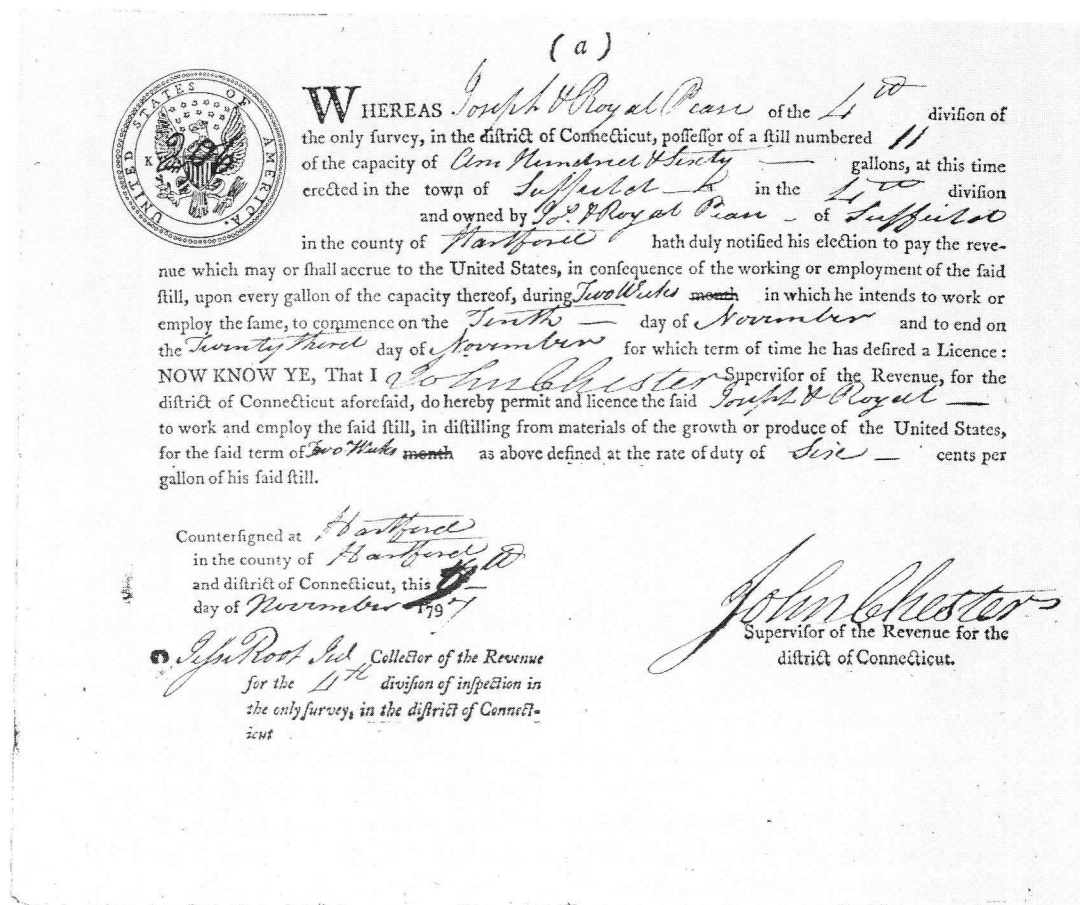 (a)
UNITED STATES OF AMERICA.
WHEREAS Joseph & Royal Pease of the 4th division of
the only ſurvey, in the diſtrict of Connecticut, poſſeſſor of a ſtill numbered 11
of the capacity of One Hundred & Sixty — gallons, at this time
erected in the town of Suffield — in the 4th division
and owned by Jos. & Royal Pease – of Suffield
in the county of Hartford hath duly notified his election to pay the reve-
nue which may or ſhall accrue to the United States, in conſequence of the working or employment of the ſaid
ſtill, upon every gallon of the capacity thereof, during Two Weeks month in which he intends to work or
employ the ſame, to commence on the Tenth — day of November and to end on
the Twenty third day of November for which term of time he has deſired a Licence:
NOW KNOW YE, That I John Chester Superviſor of the Revenue, for the
diſtrict of Connecticut aforeſaid, do hereby permit and licence the ſaid Joseph & Royal —
to work and employ the ſaid ſtill, in diſtilling from materials of the growth or produce of the United States,
for the ſaid term of Two Weeks month as above defined at the rate of duty of Six — cents per
gallon of his ſaid ſtill.
Counterſigned at Hartford
in the county of Hartford
and diſtrict of Connecticut, this
day of November 1797
Jesse Root Collector of the Revenue
for the 4th diviſion of inſpection in
the only ſurvey, in the diſtrict of Connect-
icut
John Chester
Superviſor of the Revenue for the
diſtrict of Connecticut.